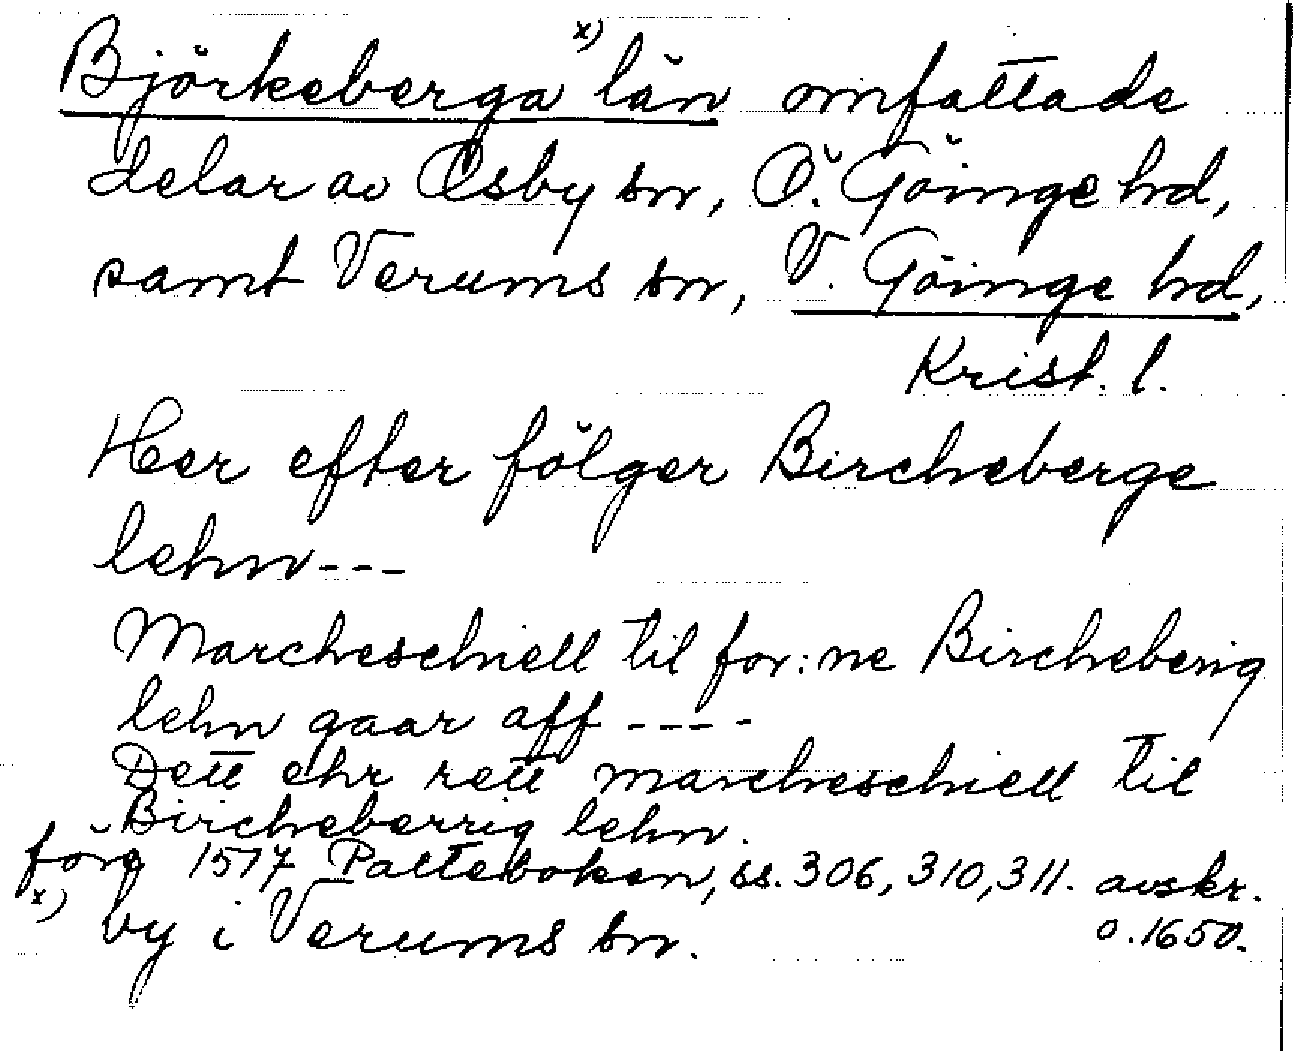 Björkeberga x) län omfattade
delar av Osby sn, Ö. Göinge hd,
samt Verums sn, V. Göinge hd,
Krist. l.
Her efter fölger Bircheberge
lehn---
Marcheschiell til for:ne Bircheberig
lehn gaar aff ----
Dett ehr rett marcheschiell til
Bircheberrig lehn.
före 1577 Palteboken, ss. 306, 310, 311. avskr.
o. 1650.
x) by i Verums sn.